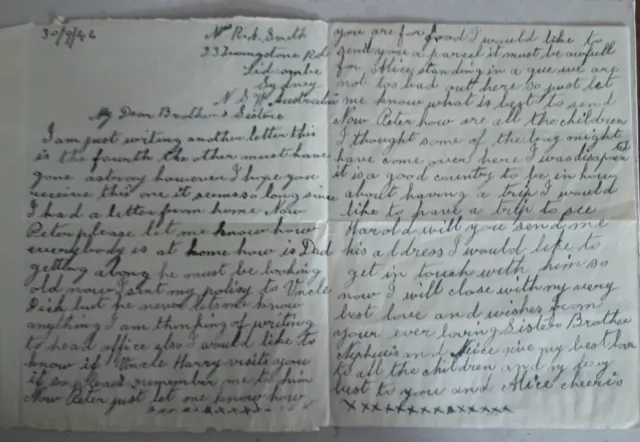 30/9/46
Mrs R. A. Smith
23 Livingstone Rd
Lidcombe
Sydney
N S W Australia
My Dear Brother & Sisters
I am just writing another letter this
is the fourth the other must have
gone astray however I hope you
receive this one it seems so long since
I had a letter from home Now
Peter please let me know how
everybody is at home how is Dad
getting along he must be looking
old now I sent my policy to Uncle
Dick but he never lets me know
anything I am thinking of writing
to head office also I would like to
know if Uncle Harry visits you
if so please remember me to him
Now Peter just let me know how
xxxxxxxxxxxx
you are for food I would like to
send you a parcel it must be awfull
for Alice standing in a que we are
not too bad out here so just let
me know what is best to send
Now Peter how are all the children
I thought some of the boy might
have come over here I was disapointed
it is a good country to be in how
about having a trip I would
like to have a trip to see
Harold will you send me
his address I would like to
get in touch with him so
now I will close with my very
best love and wishes from
your ever loving Sister Brother
Nephews and Niece give my best love
to all the children and my
best to you and Alice cheerio
xxxxxxxxxxxxxx